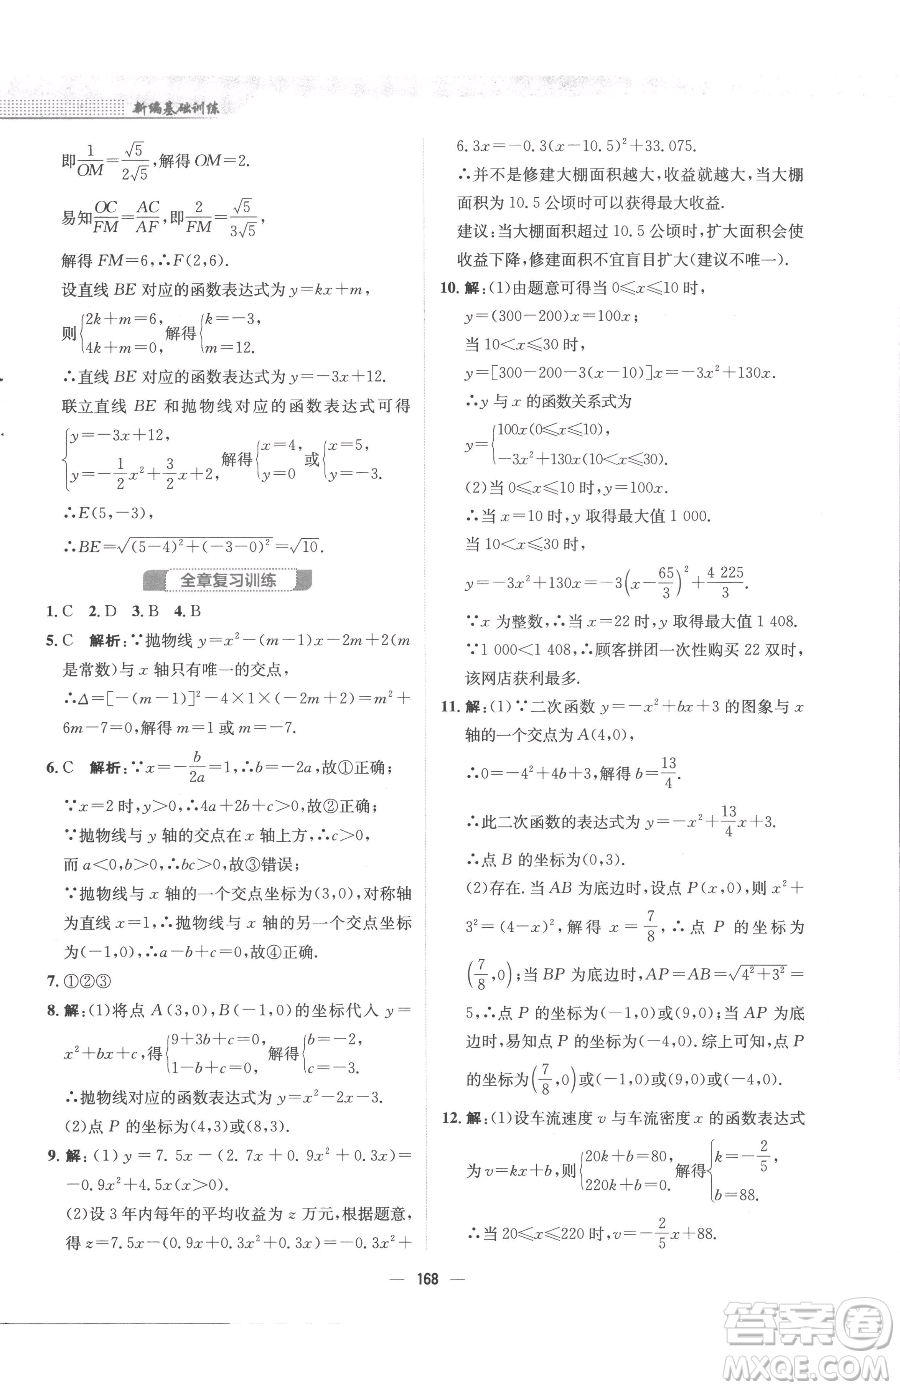 新编基础训练
即1/OM=√5/2√5,解得OM=2.
易知OC/FM=AC/AF,即2/FM=√5/3√5,
解得FM=6,∴F(2,6).
设直线BE对应的函数表达式为y=kx+m,
则{2k+m=6, 4k+m=0,解得{k=-3, m=12.
∴直线BE对应的函数表达式为y=-3x+12.
联立直线BE和抛物线对应的函数表达式可得
{y=-3x+12, y=-1/2x²+3/2x+2,解得{x=4, y=0或{x=5, y=-3.
∴E(5,-3),
∴BE=√(5-4)²+(-3-0)²=√10.
全章复习训练
1.C 2.D 3.B 4.B
5.C 解析:∵抛物线y=x²-(m-1)x-2m+2(m
是常数)与x轴只有唯一的交点,
∴Δ=[-(m-1)]²-4×1×(-2m+2)=m²+
6m-7=0,解得m=1或m=-7.
6.C 解析:∵x=-b/2a=1,∴b=-2a,故①正确;
∵x=2时,y>0,∴4a+2b+c>0,故②正确;
∵抛物线与y轴的交点在x轴上方,∴c>0,
而a<0,b>0,∴abc<0,故③错误;
∵抛物线与x轴的一个交点坐标为(3,0),对称轴
为直线x=1,∴抛物线与x轴的另一个交点坐标
为(-1,0),∴a-b+c=0,故④正确.
7.①②③
8.解:(1)将点A(3,0),B(-1,0)的坐标代入y=
x²+bx+c,得{9+3b+c=0, 1-b+c=0,解得{b=-2, c=-3.
∴抛物线对应的函数表达式为y=x²-2x-3.
(2)点P的坐标为(4,3)或(8,3).
9.解:(1)y=7.5x-(2.7x+0.9x²+0.3x)=
-0.9x²+4.5x(x>0).
(2)设3年内每年的平均收益为z万元,根据题意,
得z=7.5x-(0.9x+0.3x²+0.3x)=-0.3x²+
6.3x=-0.3(x-10.5)²+33.075.
∴并不是修建大棚面积越大,收益就越大,当大棚
面积为10.5公顷时可以获得最大收益.
建议:当大棚面积超过10.5公顷时,扩大面积会使
收益下降,修建面积不宜盲目扩大(建议不唯一).
10.解:(1)由题意可得当0≤x≤10时,
y=(300-200)x=100x;
当10<x≤30时,
y=[300-200-3(x-10)]x=-3x²+130x.
∴y与x的函数关系式为
y={100x(0≤x≤10), -3x²+130x(10<x≤30).
(2)当0≤x≤10时,y=100x.
∴当x=10时,y取得最大值1 000.
当10<x≤30时,
y=-3x²+130x=-3(x-65/3)²+4 225/3.
∵x为整数,∴当x=22时,y取得最大值1 408.
∵1 000<1 408,∴顾客拼团一次性购买22双时,
该网店获利最多.
11.解:(1)∵二次函数y=-x²+bx+3的图象与x
轴的一个交点为A(4,0),
∴0=-4²+4b+3,解得b=13/4.
∴此二次函数的表达式为y=-x²+13/4x+3.
∴点B的坐标为(0,3).
(2)存在.当AB为底边时,设点P(x,0),则x²+
3²=(4-x)²,解得x=7/8,∴点P的坐标为
(7/8,0);当BP为底边时,AP=AB=√4²+3²=
5,∴点P的坐标为(-1,0)或(9,0);当AP为底
边时,易知点P的坐标为(-4,0).综上可知,点P
的坐标为(7/8,0)或(-1,0)或(9,0)或(-4,0).
12.解:(1)设车流速度v与车流密度x的函数表达式
为v=kx+b,则{20k+b=80, 220k+b=0,解得{k=-2/5, b=88.
∴当20≤x≤220时,v=-2/5x+88.
— 168 —
答案圈
MXQE.COM